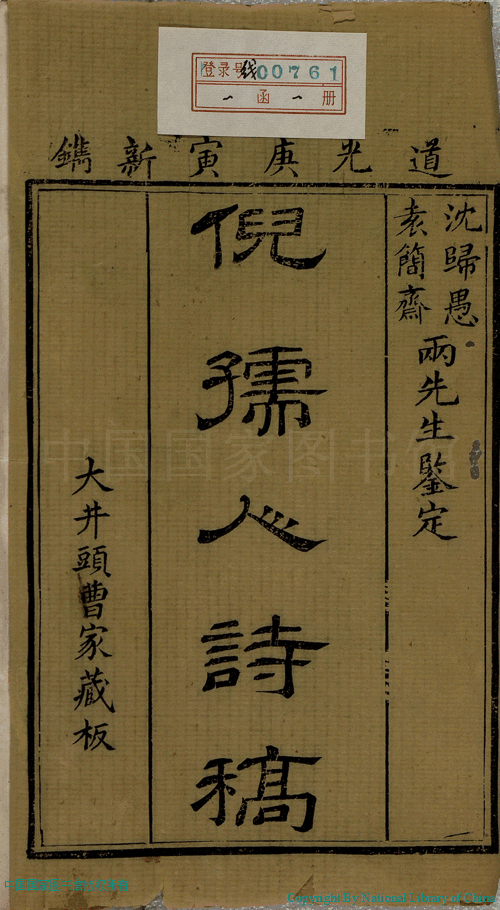 登录号 线00761
一函一册
道光庚寅新鐫
沈歸愚
袁簡齋
兩先生鑒定
倪孺心詩稿
大井頭曹家藏板
中国国家图书馆
Copyright By National Library of China